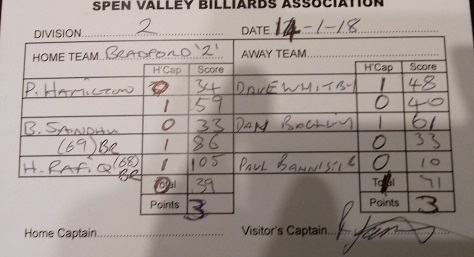 SPEN VALLEY BILLIARDS ASSOCIATION
DIVISION 2 DATE 14-1-18
HOME TEAM BRADFORD '2' AWAY TEAM
H'Cap Score H'Cap Score
P. HAMILTON 0 34 DAVE WHITBY 1 48
1 59 0 40
B. SANDHU 0 33 DAN 1 61
(69) BR 1 86 0 33
H. RAFIQ (68) BR 1 105 PAUL BANNISTER 0 10
Total 39 Total 71
Points 3 Points 3
Home Captain Visitor's Captain